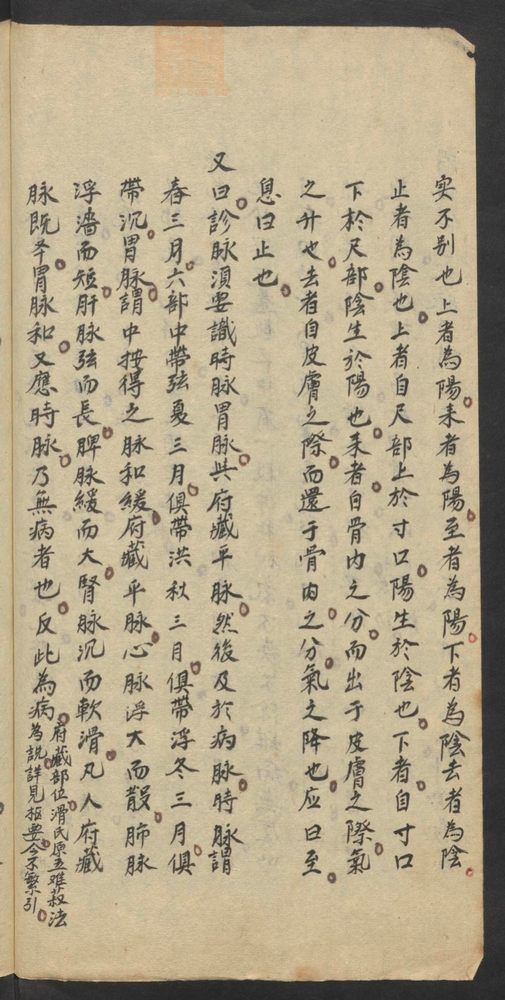 实不别也上者為陽来者為陽至者為陽下者為陰去者為陰
止者為陰也上者自尺部上於寸口陽生於陰也下者自寸口
下於尺部陰生於陽也来者自骨内之分而出于皮膚之際氣
之升也去者自皮膚之際而還于骨内之分氣之降也应曰至
息曰止也
又曰診脉湏要識時脉胃脉與府藏平脉然後及於病脉時脉謂
春三月六部中帶弦夏三月俱帶洪秋三月俱帶浮冬三月俱
帶沉胃脉謂中按得之脉和緩府藏平脉心脉浮大而散肺脉
浮濇而短肝脉弦而長脾脉緩而大腎脉沉而軟滑凡人府藏
脉既平胃脉和又應時脉乃無病者也反此為病
府藏部位滑氏原五难菽法
為説詳見枢要今不繁引